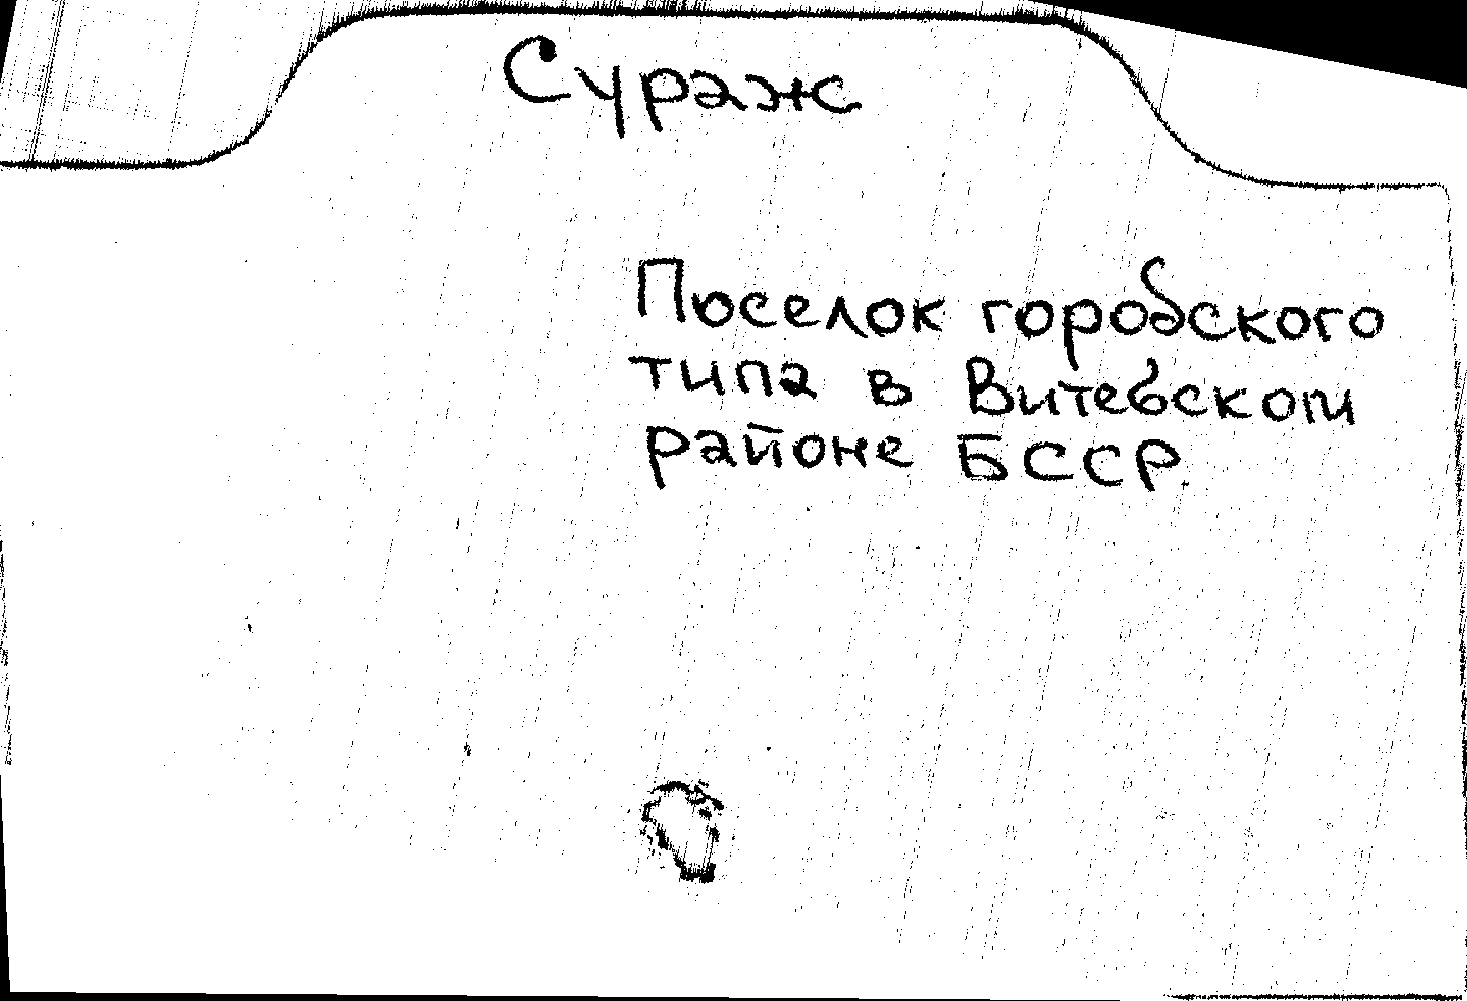 Сураж
Поселок городского
типа в Витебском
районе БССР.